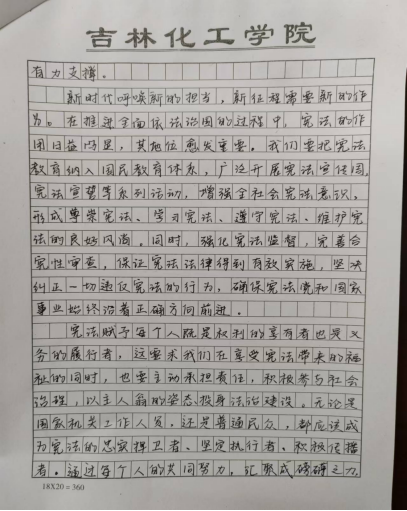 吉林化工学院
有力支撑。
新时代呼唤新的担当，新征程需要新的作
为。在推进全面依法治国的过程中，宪法的作
用日益凸显，其地位愈发重要。我们要把宪法
教育纳入国民教育体系，广泛开展宪法宣传周、
宪法宣誓等系列活动，增强全社会宪法意识，
形成尊崇宪法、学习宪法、遵守宪法、维护宪
法的良好风尚。同时，强化宪法监督，完善合
宪性审查，保证宪法法律得到有效实施，坚决
纠正一切违反宪法的行为，确保宪法党和国家
事业始终沿着正确方向前进。
宪法赋予每个人既是权利的享有者也是义
务的履行者，这要求我们在享受宪法带来的福
祉的同时，也要主动承担责任，积极参与社会
治理，以主人翁的姿态投身法治建设。无论是
国家机关工作人员，还是普通民众，都应该成
为宪法的忠实捍卫者、坚定执行者、积极传播
者。通过每个人的共同努力，汇聚成磅礴之力，
18X20=360